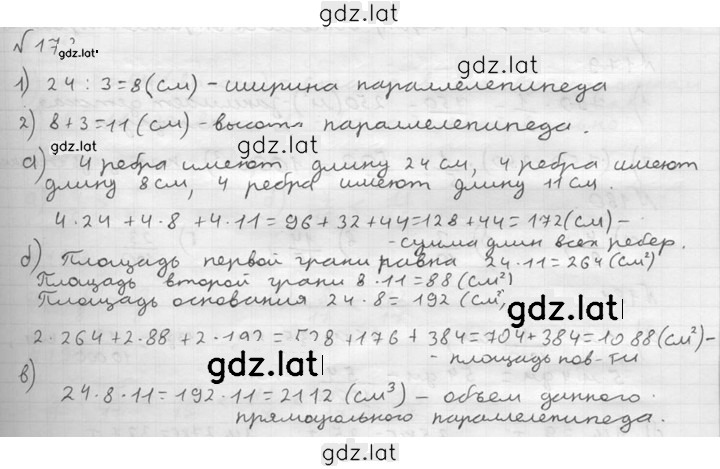 gdz.lat
№ 17 gdz.lat.
1) 24 : 3 = 8 (см) - ширина параллелепипеда
gdz.lat
2) 8 + 3 = 11 (см) - высота параллелепипеда.
gdz.lat gdz.lat
а) 4 ребра имеют длину 24 см, 4 ребра имеют
длину 8 см, 4 ребра имеют длину 11 см.
4·24 + 4·8 + 4·11 = 96 + 32 + 44 = 128 + 44 = 172 (см) -
- сумма длин всех ребер.
б) Площадь первой грани равна 24·11 = 264 (см²)
Площадь второй грани 8·11 = 88 (см²)
Площадь основания 24·8 = 192 (см²)
gdz.lat
2·264 + 2·88 + 2·192 = 528 + 176 + 384 = 704 + 384 = 1088 (см²) -
- площадь пов-ти
gdz.lat
в)
24·8·11 = 192·11 = 2112 (см³) - объем данного
прямоугольного параллелепипеда.
gdz.lat